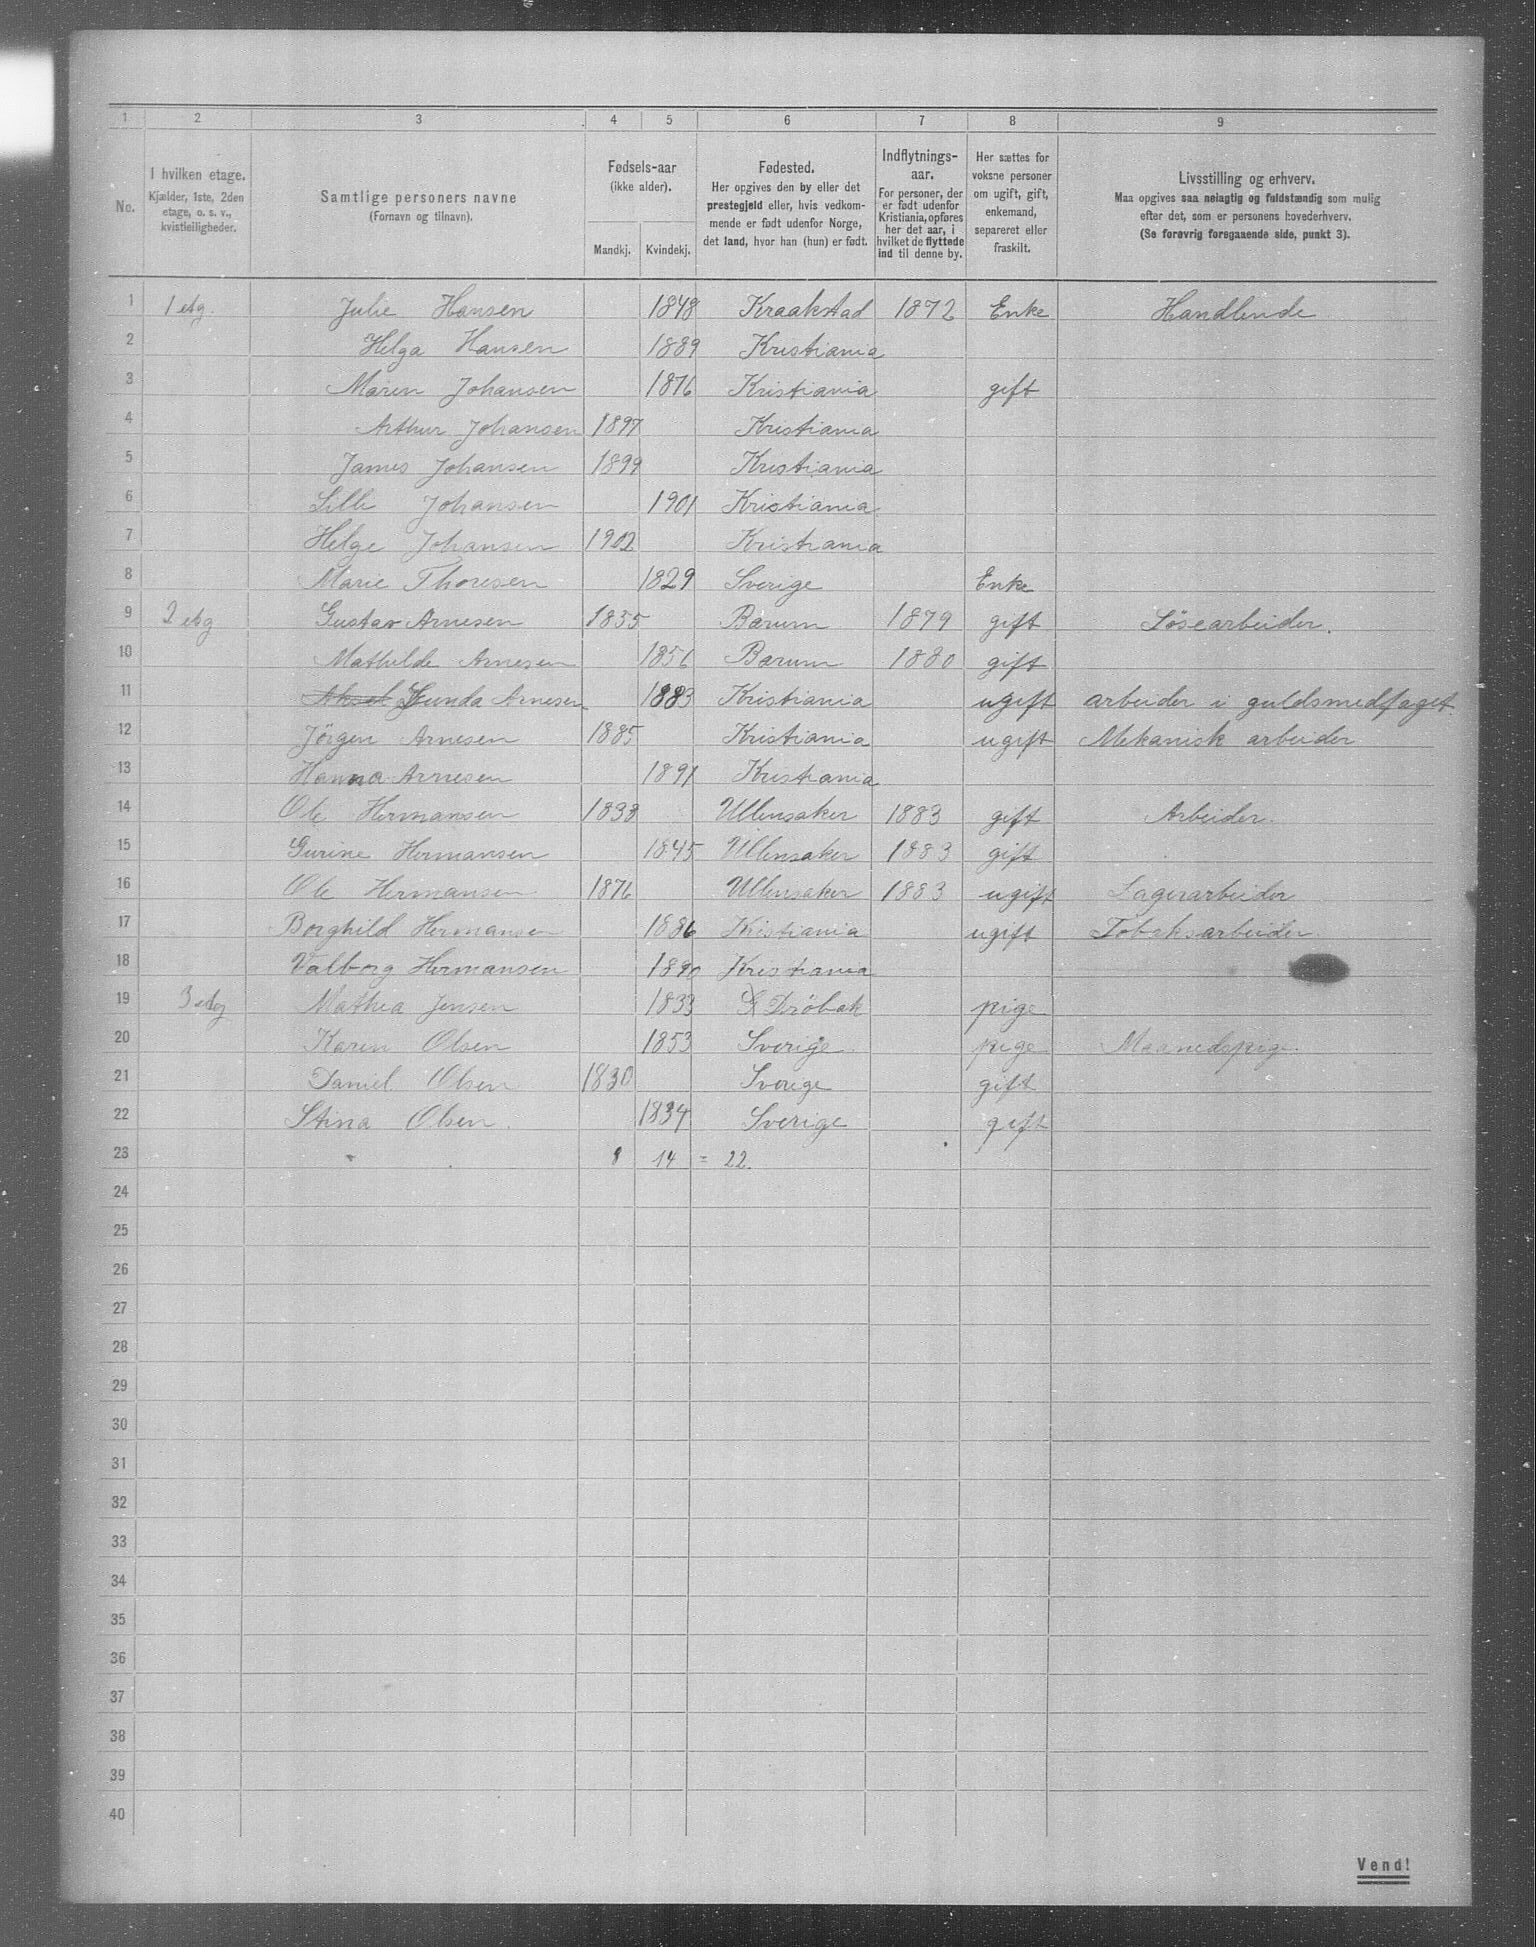 1 2 3 4 5 6 7 8 9
No.
I hvilken etage.
Kjælder, 1ste, 2den
etage, o. s. v.,
kvistleiligheder.
Samtlige personers navne
(Fornavn og tilnavn).
Fødsels-aar
(ikke alder).
Mandkj. Kvindekj.
Fødested.
Her opgives den by eller det
prestegjeld eller, hvis vedkom-
mende er født udenfor Norge,
det land, hvor han (hun) er født.
Indflytnings-
aar.
For personer, der
er født udenfor
Kristiania, opføres
her det aar, i
hvilket de flyttede
ind til denne by.
Her sættes for
voksne personer
om ugift, gift,
enkemand,
separeret eller
fraskilt.
Livsstilling og erhverv.
Maa opgives saa nøiagtig og fuldstændig som mulig
efter det, som er personens hovederhverv.
(Se forøvrig foregaaende side, punkt 3).
1 1 etg. Julie Hansen 1848 Kraakstad 1872 Enke Handlende
2 Helga Hansen 1889 Kristiania
3 Maren Johansen 1876 Kristiania gift
4 Arthur Johansen 1897 Kristiania
5 James Johansen 1899 Kristiania
6 Lilli Johansen 1901 Kristiania
7 Helge Johansen 1902 Kristiania
8 Marie Thoresen 1829 Sverige Enke
9 2 etg Gustav Arnesen 1855 Bærum 1879 gift Løsearbeider.
10 Mathilde Arnesen 1856 Bærum 1880 gift
11 Aksel Gunda Arnesen 1883 Kristiania ugift arbeider i guldsmedfaget.
12 Jörgen Arnesen 1885 Kristiania ugift Mekanisk arbeider
13 Hanna Arnesen 1891 Kristiania
14 Ole Hermansen 1838 Ullensaker 1883 gift Arbeider.
15 Gurine Hermansen 1845 Ullensaker 1883 gift
16 Ole Hermansen 1876 Ullensaker 1883 ugift Lagerarbeider
17 Borghild Hermansen 1886 Kristiania ugift Tobaksarbeider.
18 Valborg Hermansen 1890 Kristiania
19 3 etg Mathea Jensen 1833 Dröbak pige
20 Karen Olsen 1853 Sverige. pige Maanedspige.
21 Daniel Olsen 1830 Sverige gift
22 Stina Olsen. 1834 Sverige gift
23 8 14 = 22.
24
25
26
27
28
29
30
31
32
33
34
35
36
37
38
39
40
Vend!